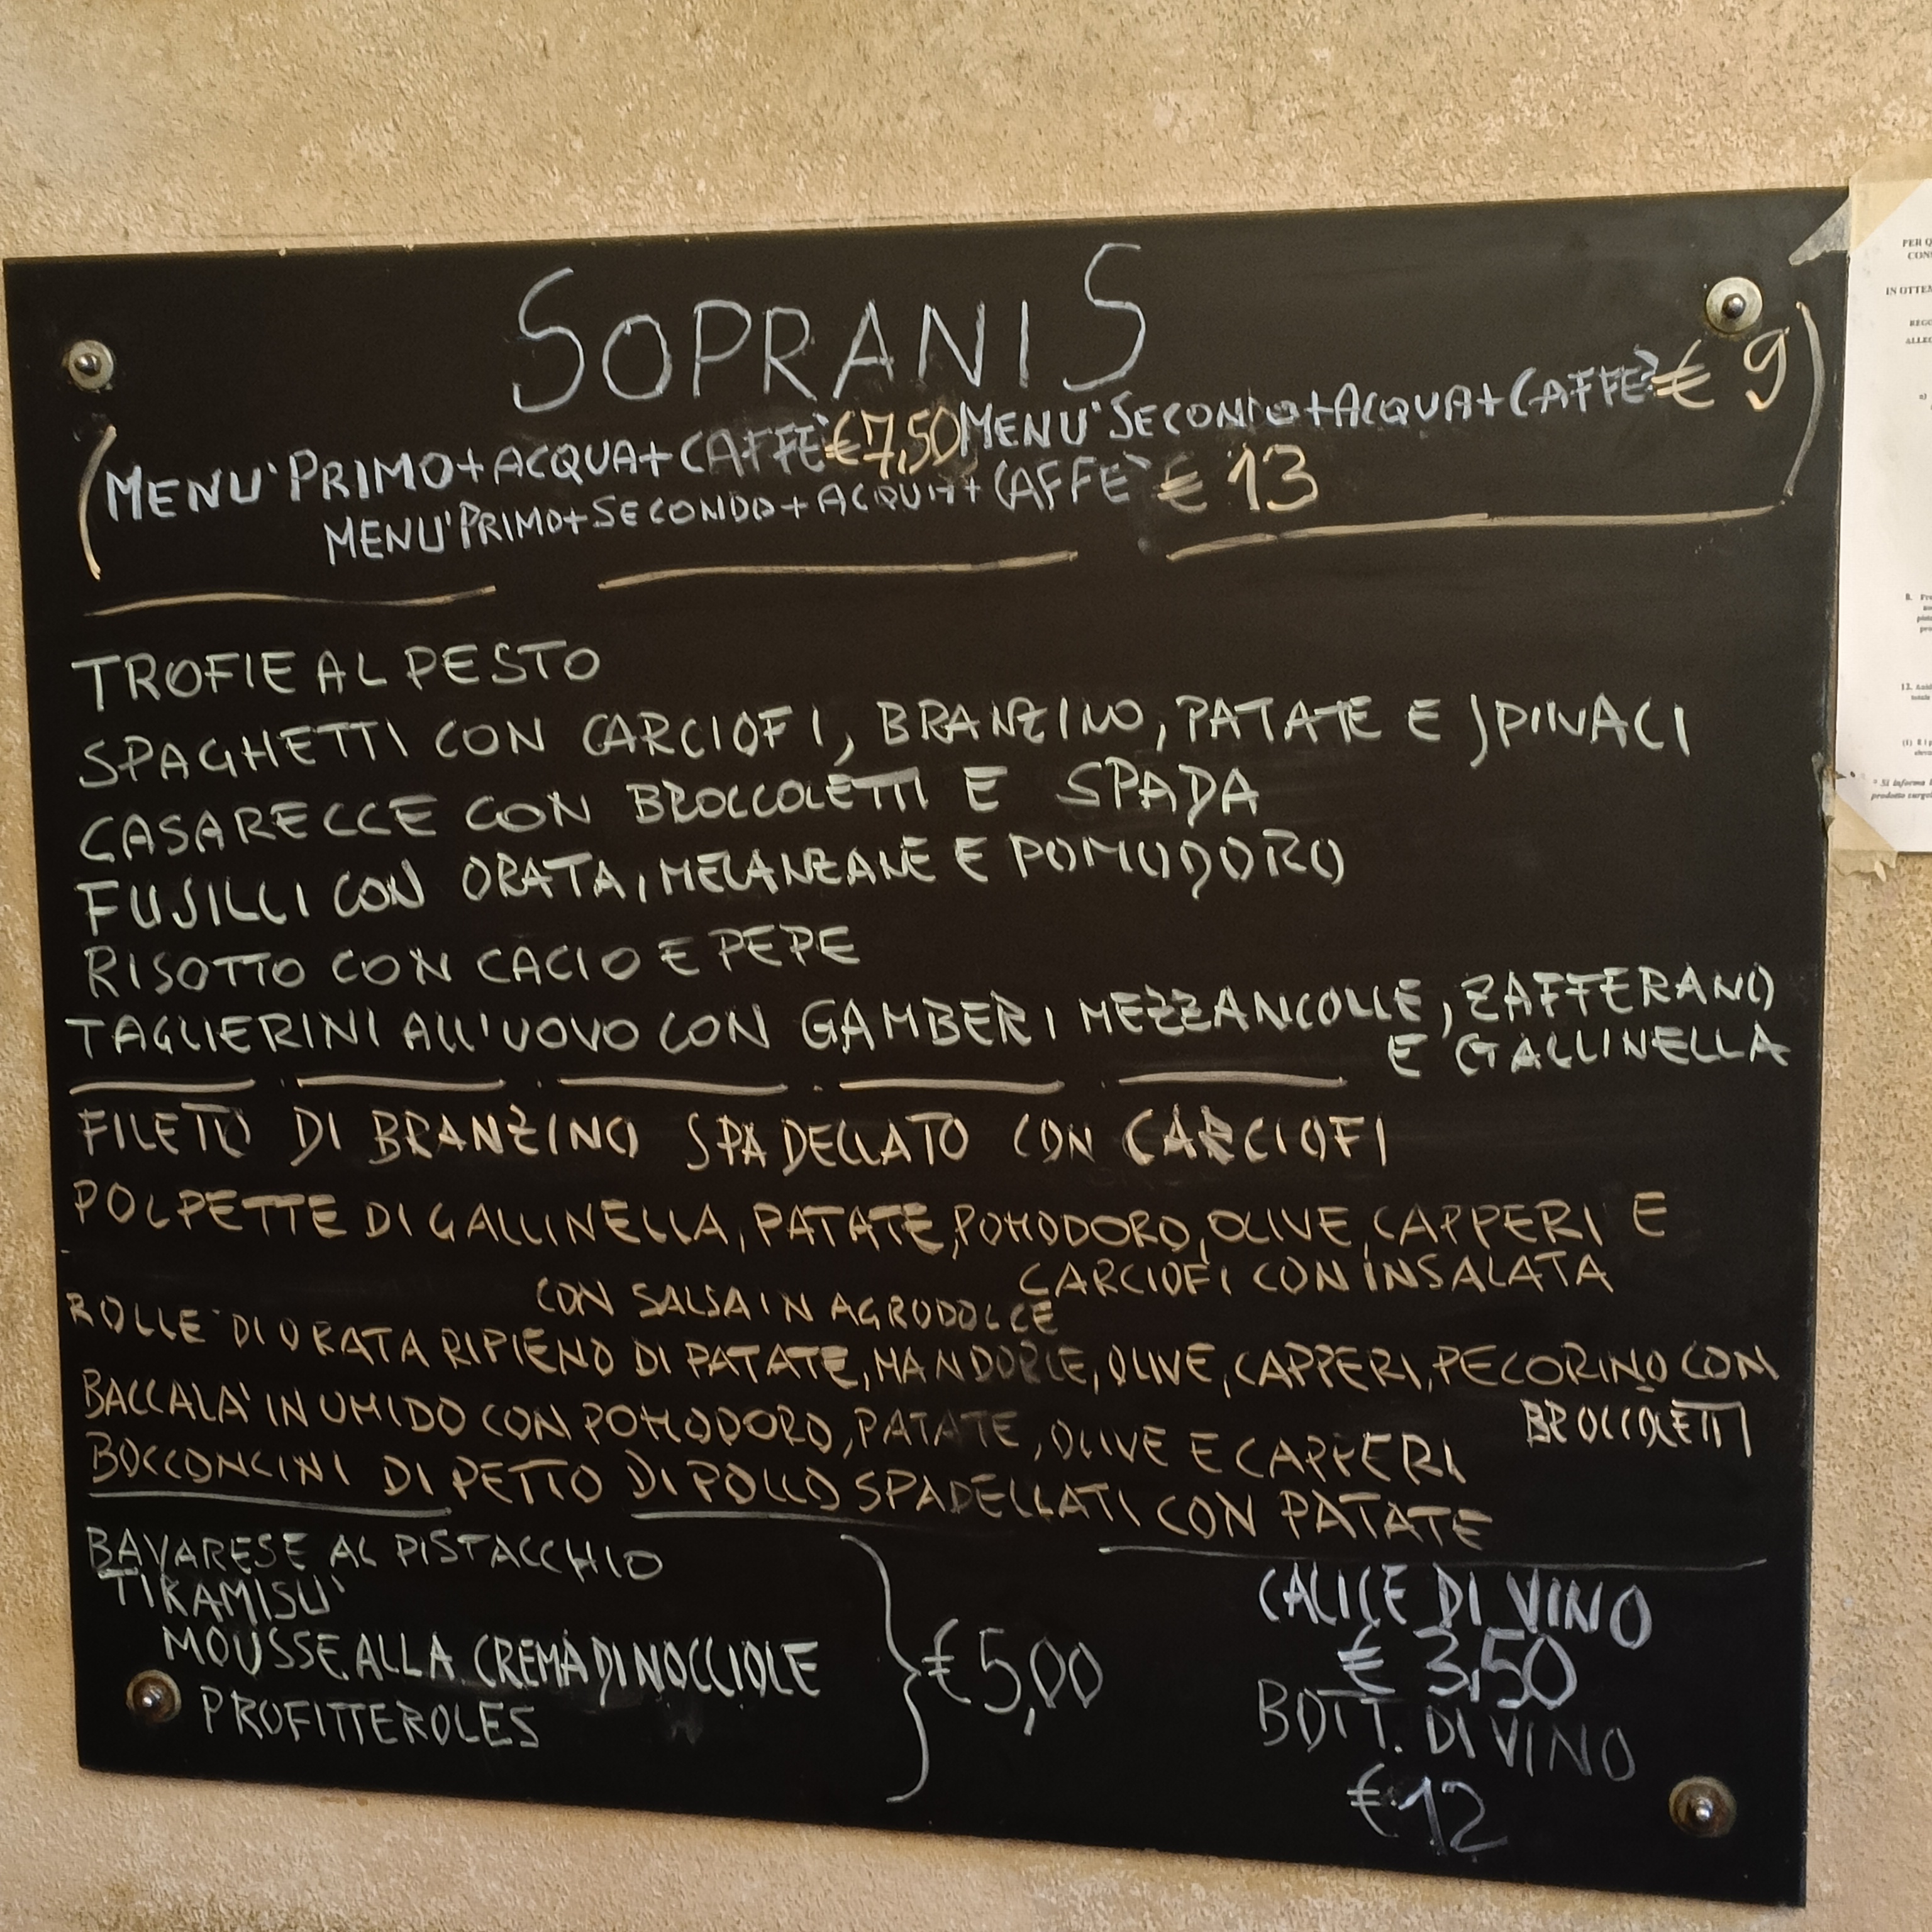 SOPRANIS
MENU' PRIMO+ACQUA+CAFFE' €7,50 MENU' SECONDO+ACQUA+CAFFE' € 9
MENU' PRIMO+SECONDO+ACQUA+CAFFE' € 13
TROFIE AL PESTO
SPAGHETTI CON CARCIOFI, BRANZINO, PATATE E SPINACI
CASARECCE CON BROCCOLETTI E SPADA
FUSILLI CON ORATA, MELANZANE E POMODORO
RISOTTO CON CACIO E PEPE
TAGLIERINI ALL'UOVO CON GAMBERI MEZZANCOLLE, ZAFFERANO
E GALLINELLA
FILETTO DI BRANZINO SPADELLATO CON CARCIOFI
POLPETTE DI GALLINELLA, PATATE, POMODORO, OLIVE, CAPPERI E
CARCIOFI CON INSALATA
CON SALSA IN AGRODOLCE
ROLLE' DI ORATA RIPIENO DI PATATE, MANDORLE, OLIVE, CAPPERI, PECORINO CON
BROCCOLETTI
BACCALA' IN UMIDO CON POMODORO, PATATE, OLIVE E CAPPERI
BOCCONCINI DI PETTO DI POLLO SPADELLATI CON PATATE
BAVARESE AL PISTACCHIO
TIRAMISU'
MOUSSE ALLA CREMA DI NOCCIOLE
PROFITTEROLES
€ 5,00
CALICE DI VINO
€ 3,50
BOTT. DI VINO
€ 12
PER Q
IN OTTEM
* Si informa